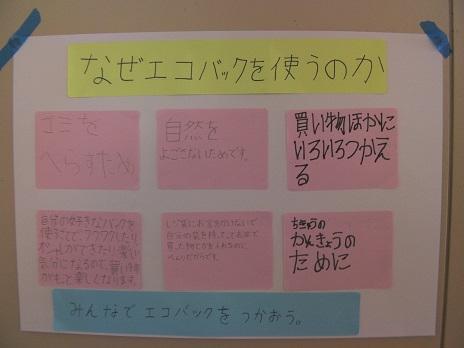 なぜエコバックを使うのか
ゴミを
へらすため
自然を
よごさないためです。
買い物ほかに
いろいろつかえ
る
自分の好きなバックを
使うことで、ワクワクしたり
気分になるので、買い物
がもっと楽しくなります。
レジ袋にお金をかけないで
自分の袋を持ってことお店で
買った物とかを入れるのに
べんりだからです。
ちきゅうの
かんきょうの
ために
みんなでエコバックをつかおう。